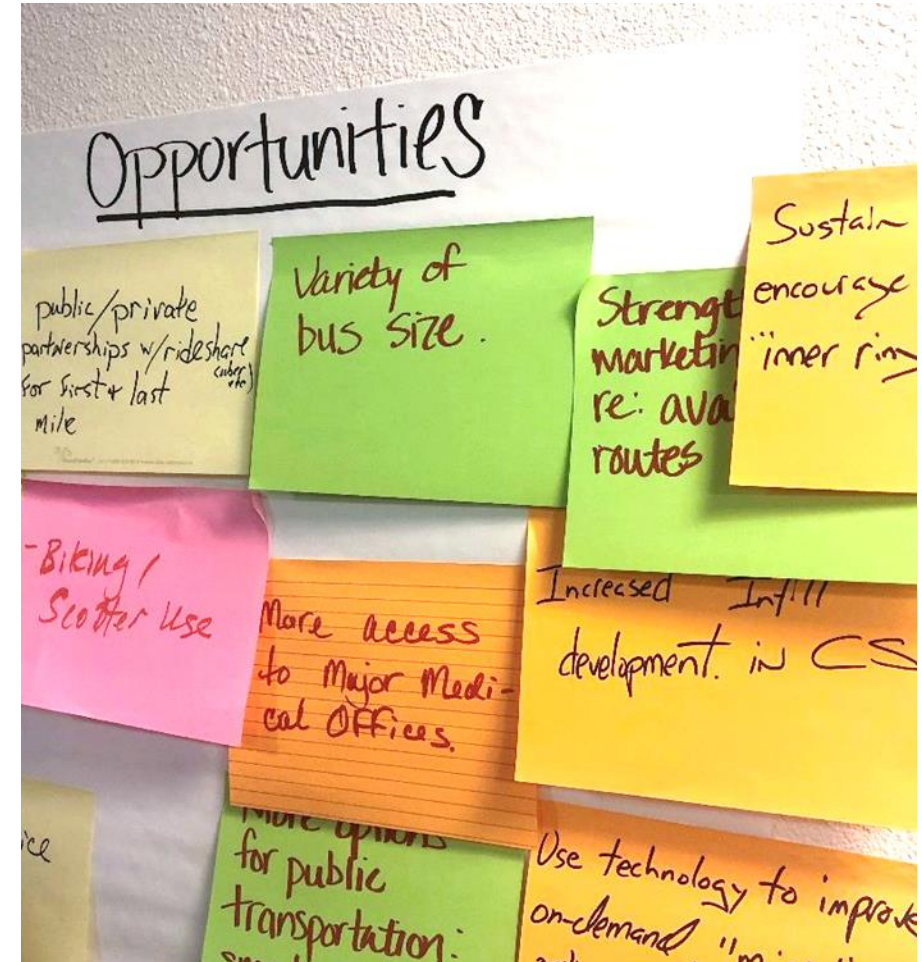 Opportunities
public/private
partnerships w/rideshare
(uber
etc)
for first + last
mile
Variety of
bus size.
Strengt
marketin
re: ava
routes
Sustain
encourage
"inner ring
-Biking/
Scooter Use
More access
to Major Medi-
cal Offices.
Increased Infill
development. in CS
ice
More options
for public
transportation:
Use technology to improve
on-demand